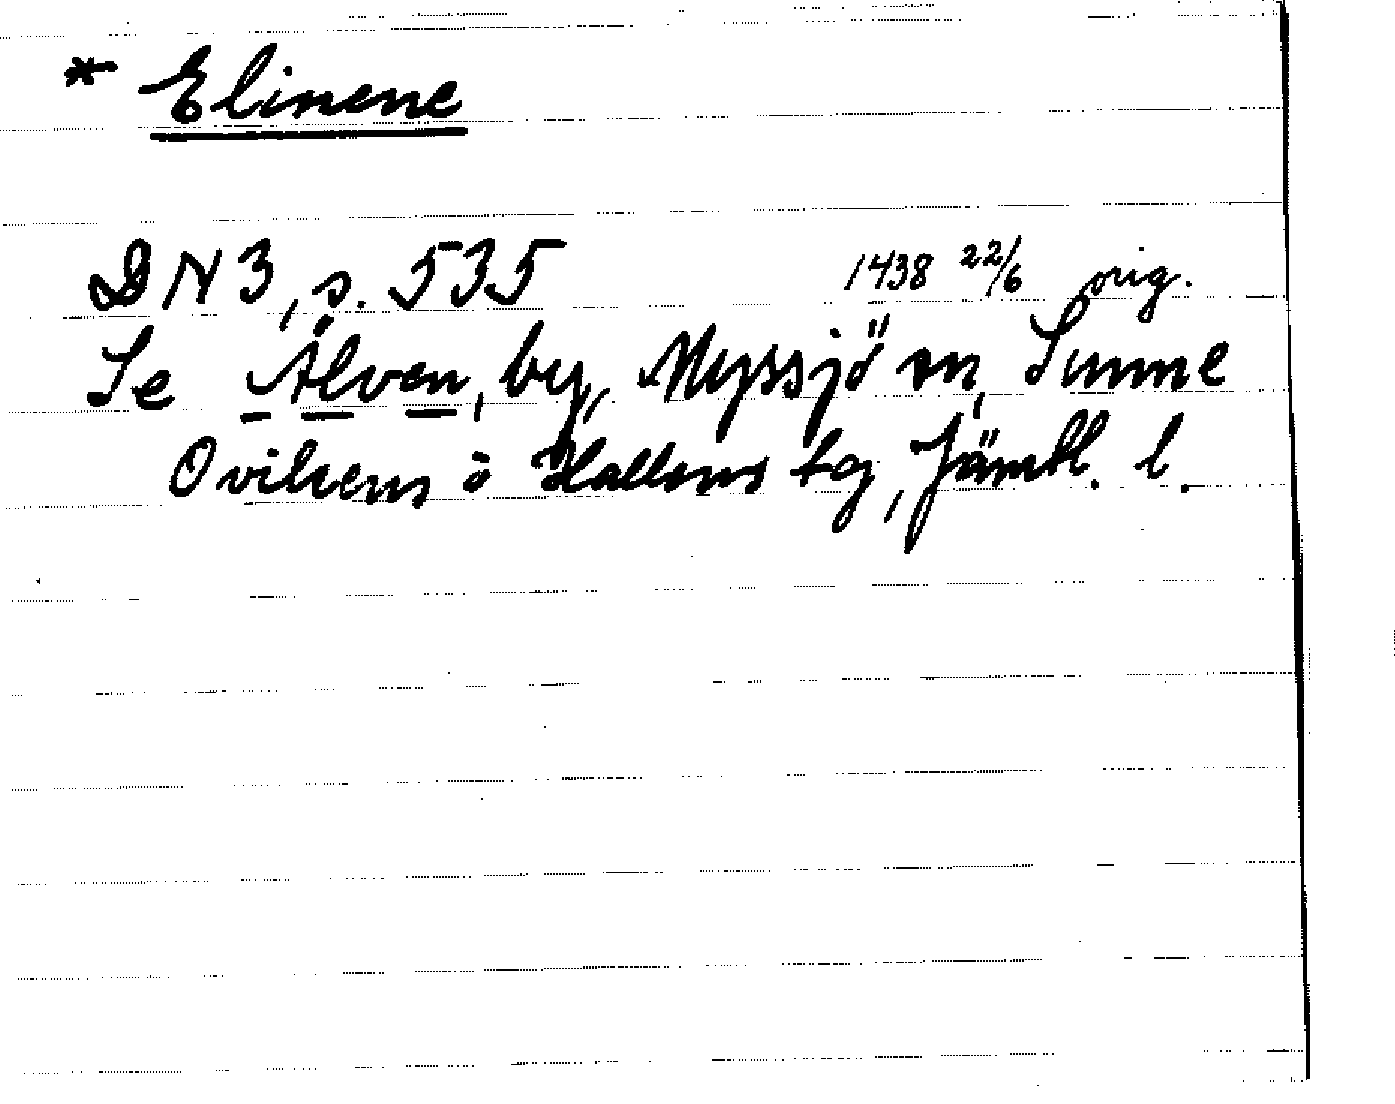 * Elinene
DN 3, s. 535 1438 22/6 orig.
Se Älven, by, Myssjö sn, Sunne
Ovikens o Hallens tg, Jämtl. l.